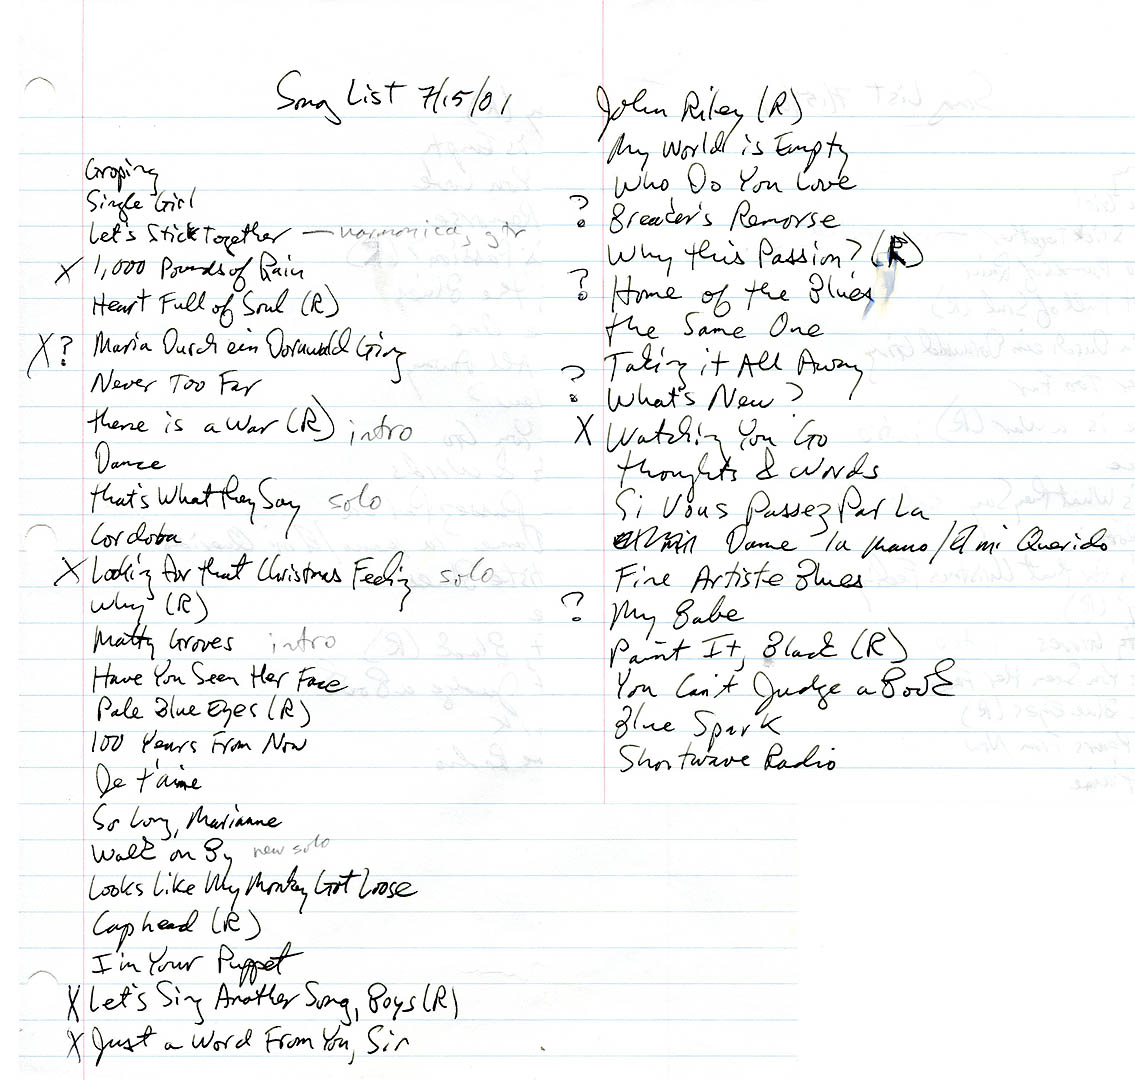 Song List 7/15/01
Groping
Single Girl
Let's Stick Together — harmonica, gtr
X 1,000 Pounds of Rain
Heart Full of Soul (R)
X? Maria Durch ein Dornwald Ging
Never Too Far
there is a War (R) intro
Dance
that's What they Say solo
Cordoba
X Looking for that Christmas Feeling solo
Why (R)
Matty Groves intro
Have You Seen Her Face
Pale Blue Eyes (R)
100 Years From Now
Je t'aime
So Long, Marianne
Walk on By new solo
Looks Like My Monkey Got Loose
Caphead (R)
I'm Your Puppet
X Let's Sing Another Song, Boys (R)
X Just a Word From You, Sir
John Riley (R)
My World is Empty
Who Do You Love
? Breader's Remorse
Why this Passion? (R)
? Home of the Blues
the Same One
Taking it All Away
? What's New?
X Watching You Go
thoughts & Words
Si Vous Passez Par La
Dame la mano/El mi Querido
Fine Artiste Blues
? My Babe
Paint It, Black (R)
You Can't Judge a Book
Blue Spark
Shortwave Radio